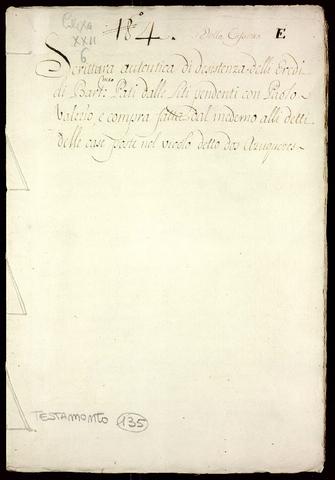 Caixa
XXII
6
18º4.
Della Caparra E
Scrittura autentica di desistenza delli Eredi
di Bartᵐᵉᵒ Pali dalle liti vendenti con Paolo
Valerio, e compra fatta dal medemo alli detti
delle case poste nel vicolo detto dos Azugueres
TESTAMONTO 135